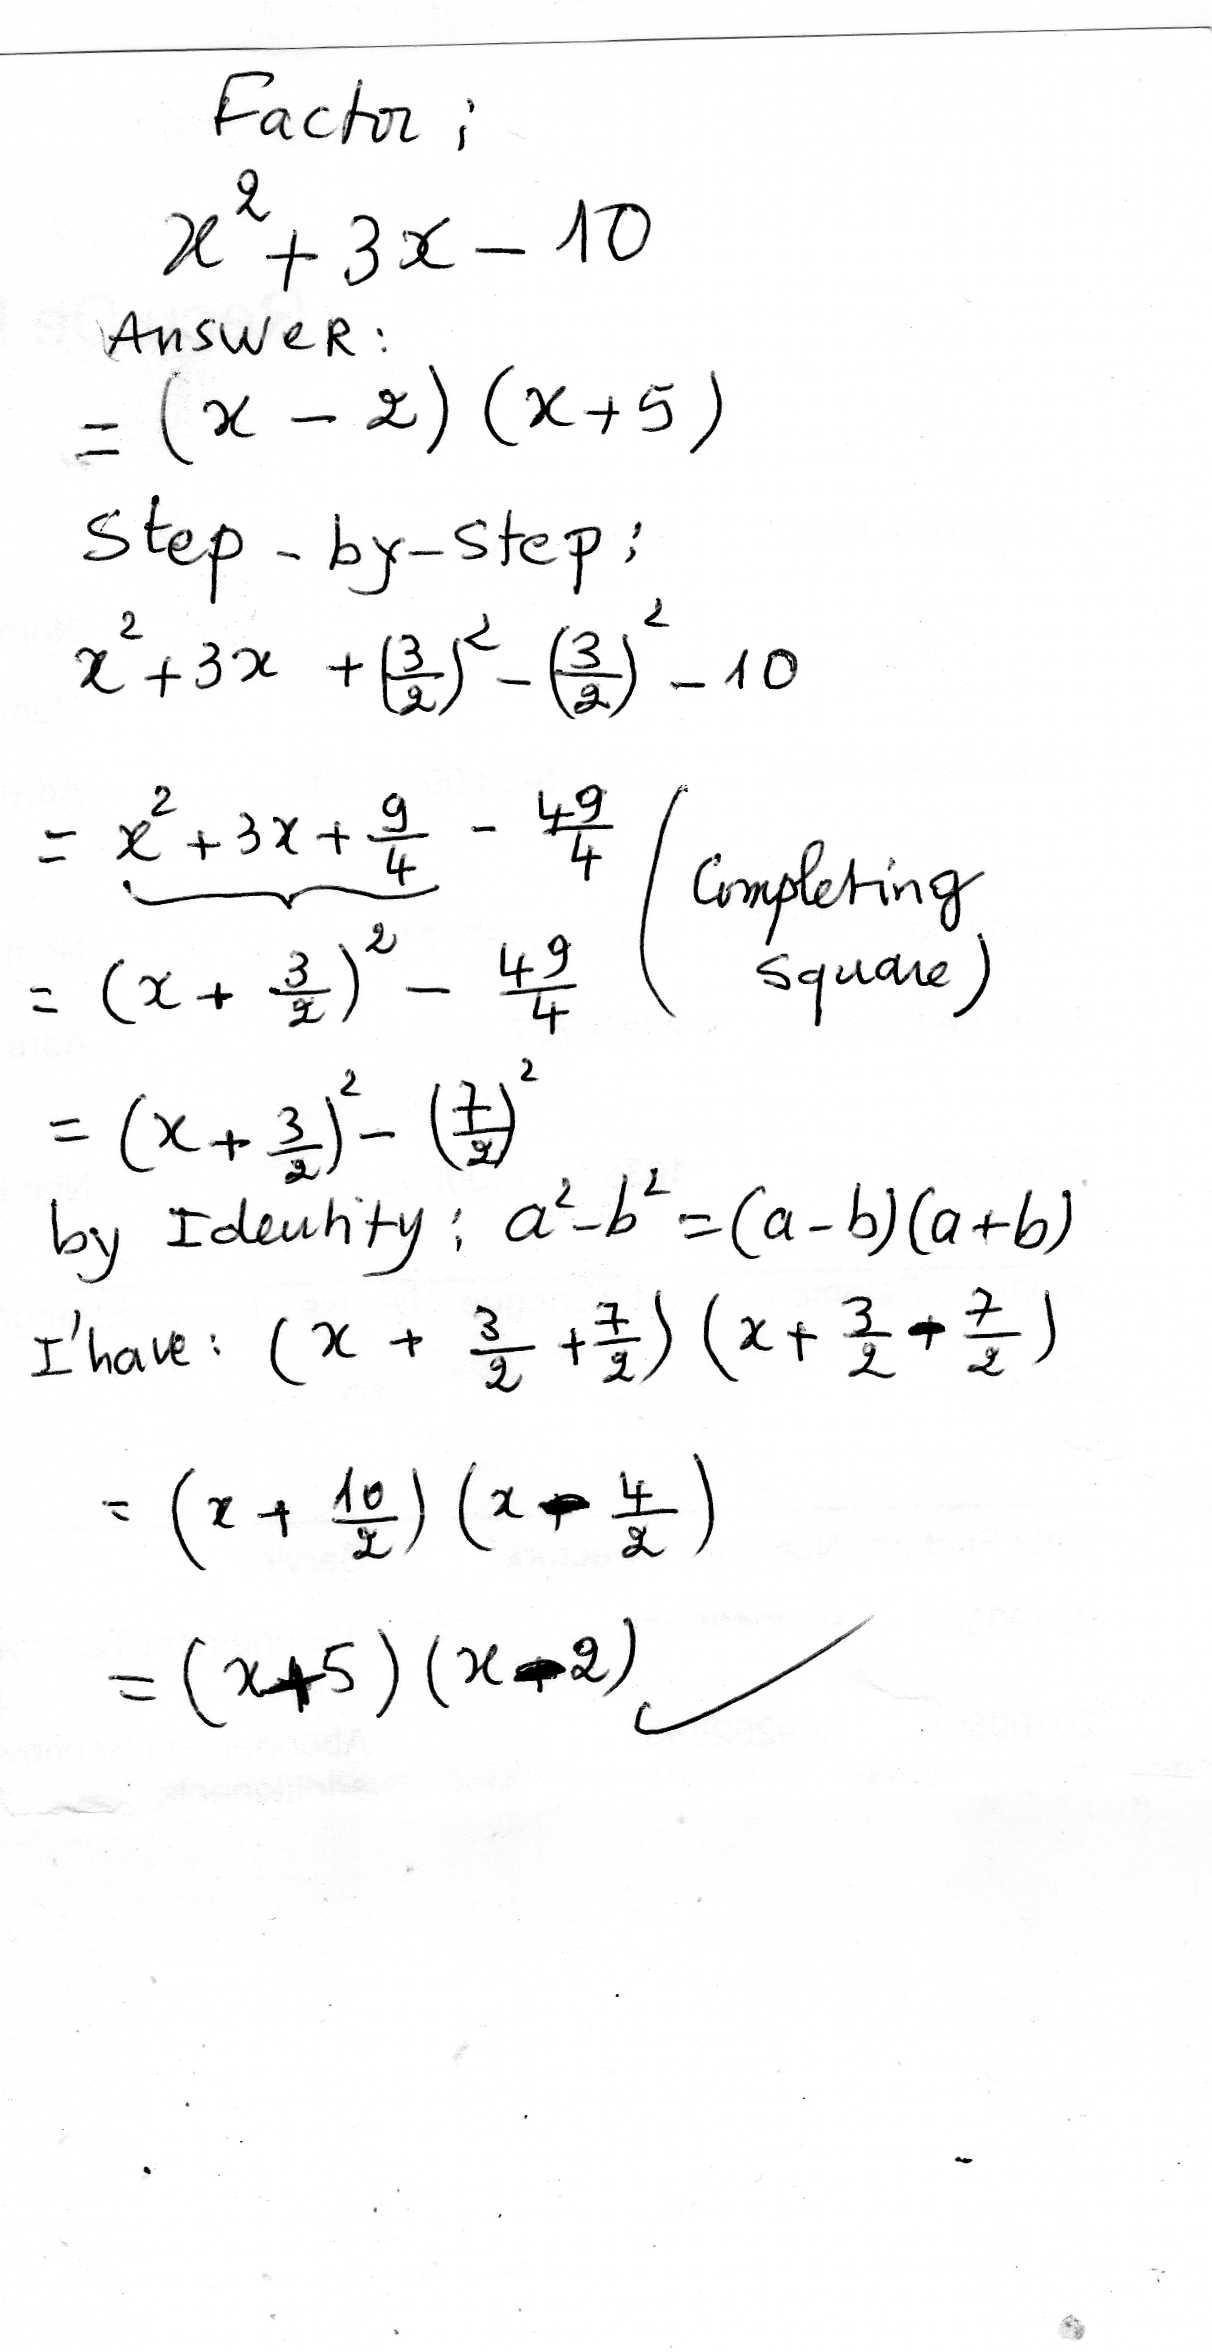 Factor:
x² + 3x - 10
Answer:
= (x - 2) (x + 5)
Step-by-Step:
x² + 3x + (3/2)² - (3/2)² - 10
= x² + 3x + 9/4 - 49/4 (Completing
square)
= (x + 3/2)² - 49/4
= (x + 3/2)² - (7/2)²
by Identity: a² - b² = (a - b)(a + b)
I'have: (x + 3/2 + 7/2) (x + 3/2 - 7/2)
= (x + 10/2) (x - 4/2)
= (x + 5) (x - 2) ✓